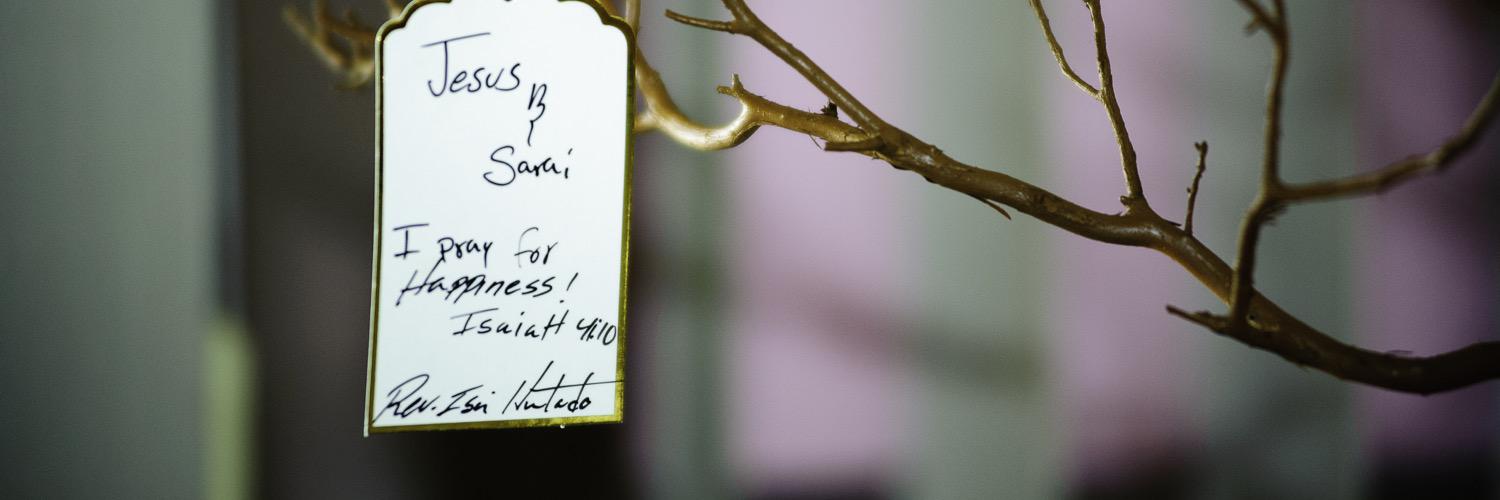 Jesus
&
Sarai
I pray for
Happiness!
Isaiah 41:10
Rev. Isai Hurtado